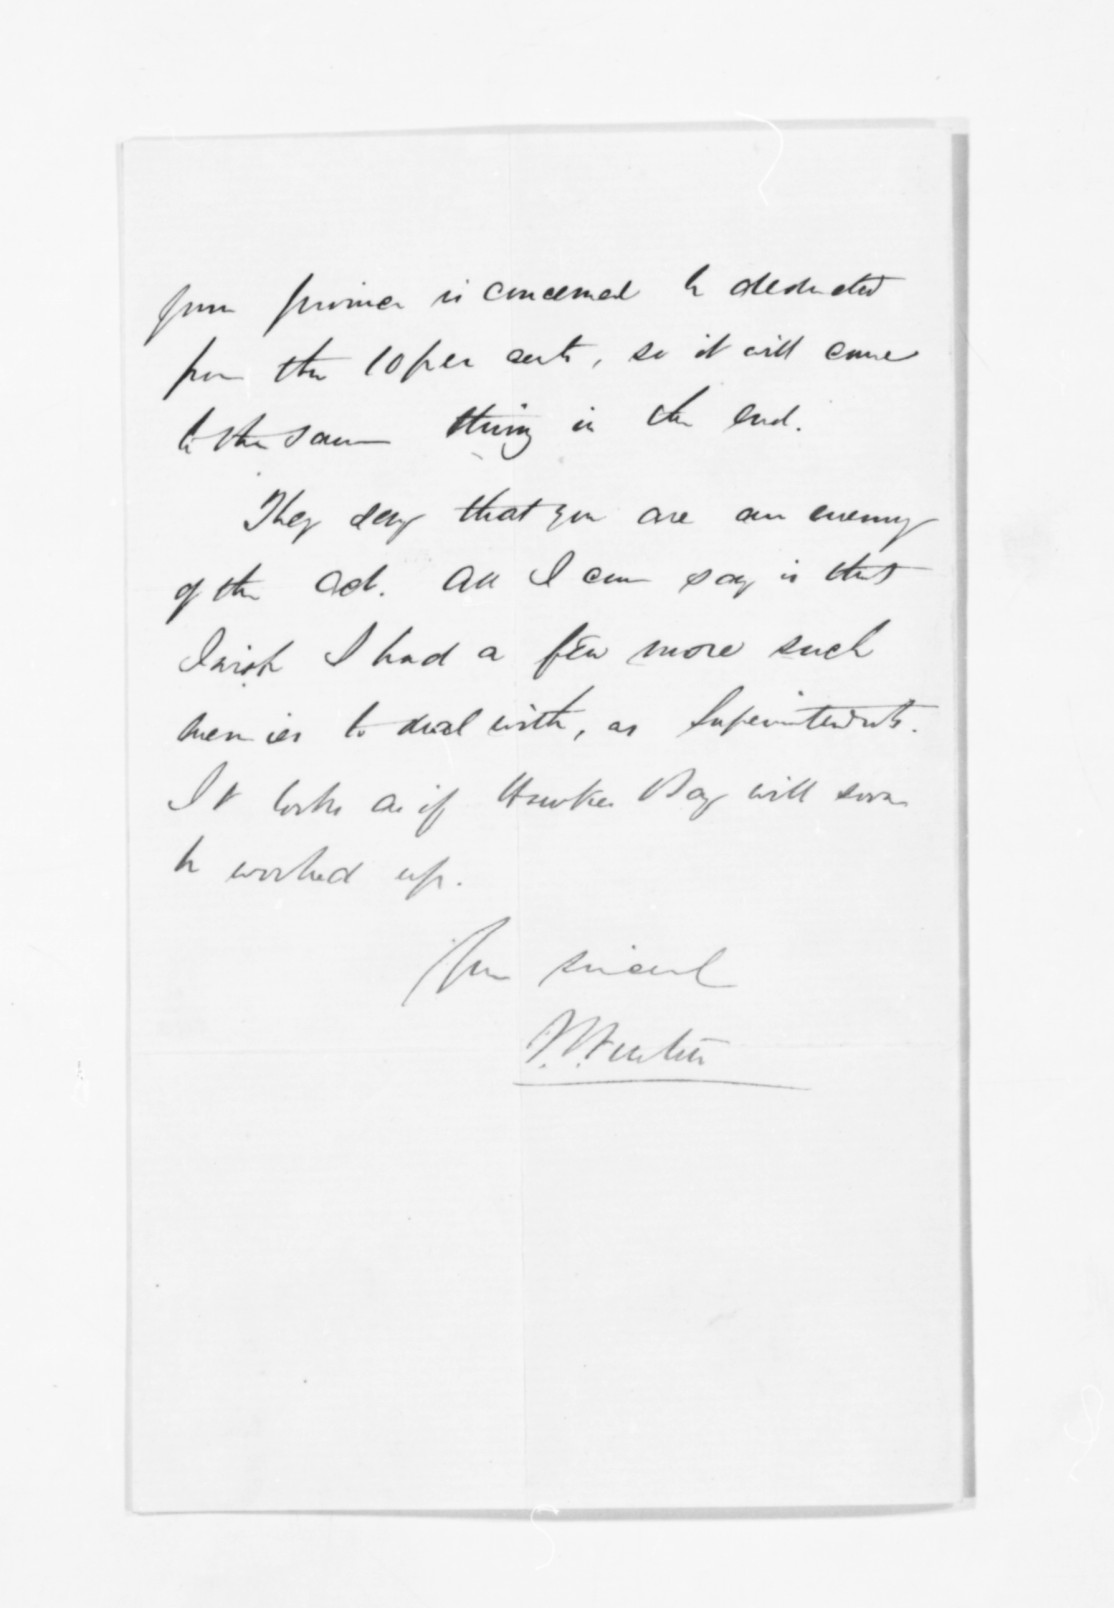 your province is concerned be deducted
from the 10 per cents, so it will come
to the same thing in the end.
They say that you are an enemy
of the Act. All I can say is that
I wish I had a few more such
enemies to deal with, as Superintendents.
It looks as if Hawkes Bay will soon
be worked up.
Your sincerel